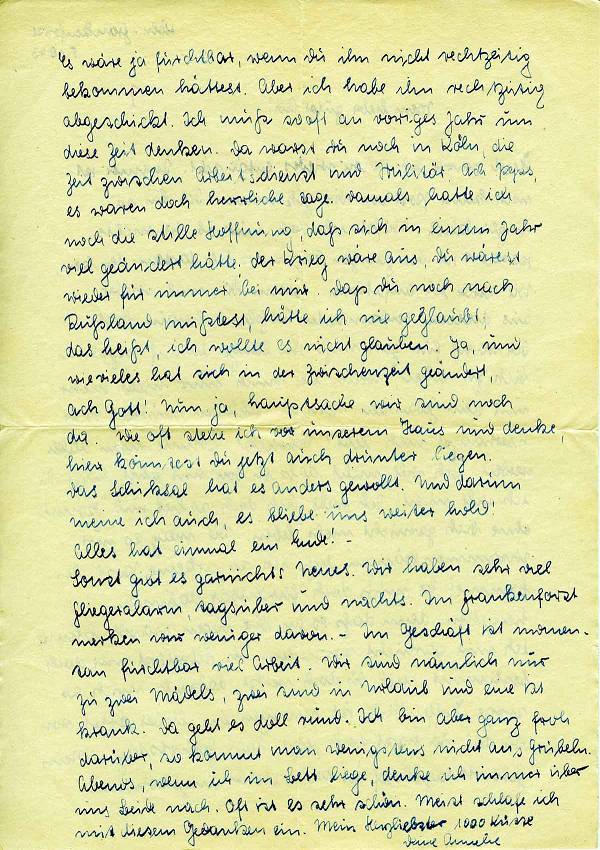 Es wäre ja fürchtbar, wenn du ihn nicht rechtzeitig
bekommen hättest. Aber ich habe ihn rechtzeitig
abgeschickt. Ich muß sooft an voriges Jahr um
diese Zeit denken. Da warst du noch in Köln, die
Zeit zwischen Arbeitsdienst und Militär. Ach
es waren doch herrliche Tage. Damals hatte ich
noch die stille Hoffnung, daß sich in einem Jahr
viel geändert hätte, der Krieg wäre aus, du wärest
wieder für immer bei mir. Daß du noch nach
Rußland mußtest, hätte ich nie geglaubt.
das heißt, ich wollte es nicht glauben. Ja, und
wievieles hat sich in der Zwischenzeit geändert,
ach Gott! Nun ja, hauptsache, wir sind noch
da. Wie oft stehe ich vor unserem Haus und denke,
hier könntest du jetzt auch drunter liegen.
Das Schiksal hat es anders gewollt. Und darum
meine ich auch, es bliebe uns weiter hold!
Alles hat einmal ein Ende!
Sonst gibt es garnichts Neues. Wir haben sehr viel
Fliegeralarm, tagsüber und nachts. Im Frankenforst
merken wir weniger davon. - Im Geschäft ist momen-
tan fürchtbar viel Arbeit. Wir sind nämlich nur
zu zwei Mädels, zwei sind in Urlaub und eine ist
krank. Da geht es doll rund. Ich bin aber ganz froh
darüber, so kommt man wenigstens nicht ans Grübeln.
Abends, wenn ich im Bett liege, denke ich immer über
uns beide nach. Oft ist es sehr schön. Meist schlafe ich
mit diesem Gedanken ein. Mein Herzliebster 1000 Küsse
deine Annelie